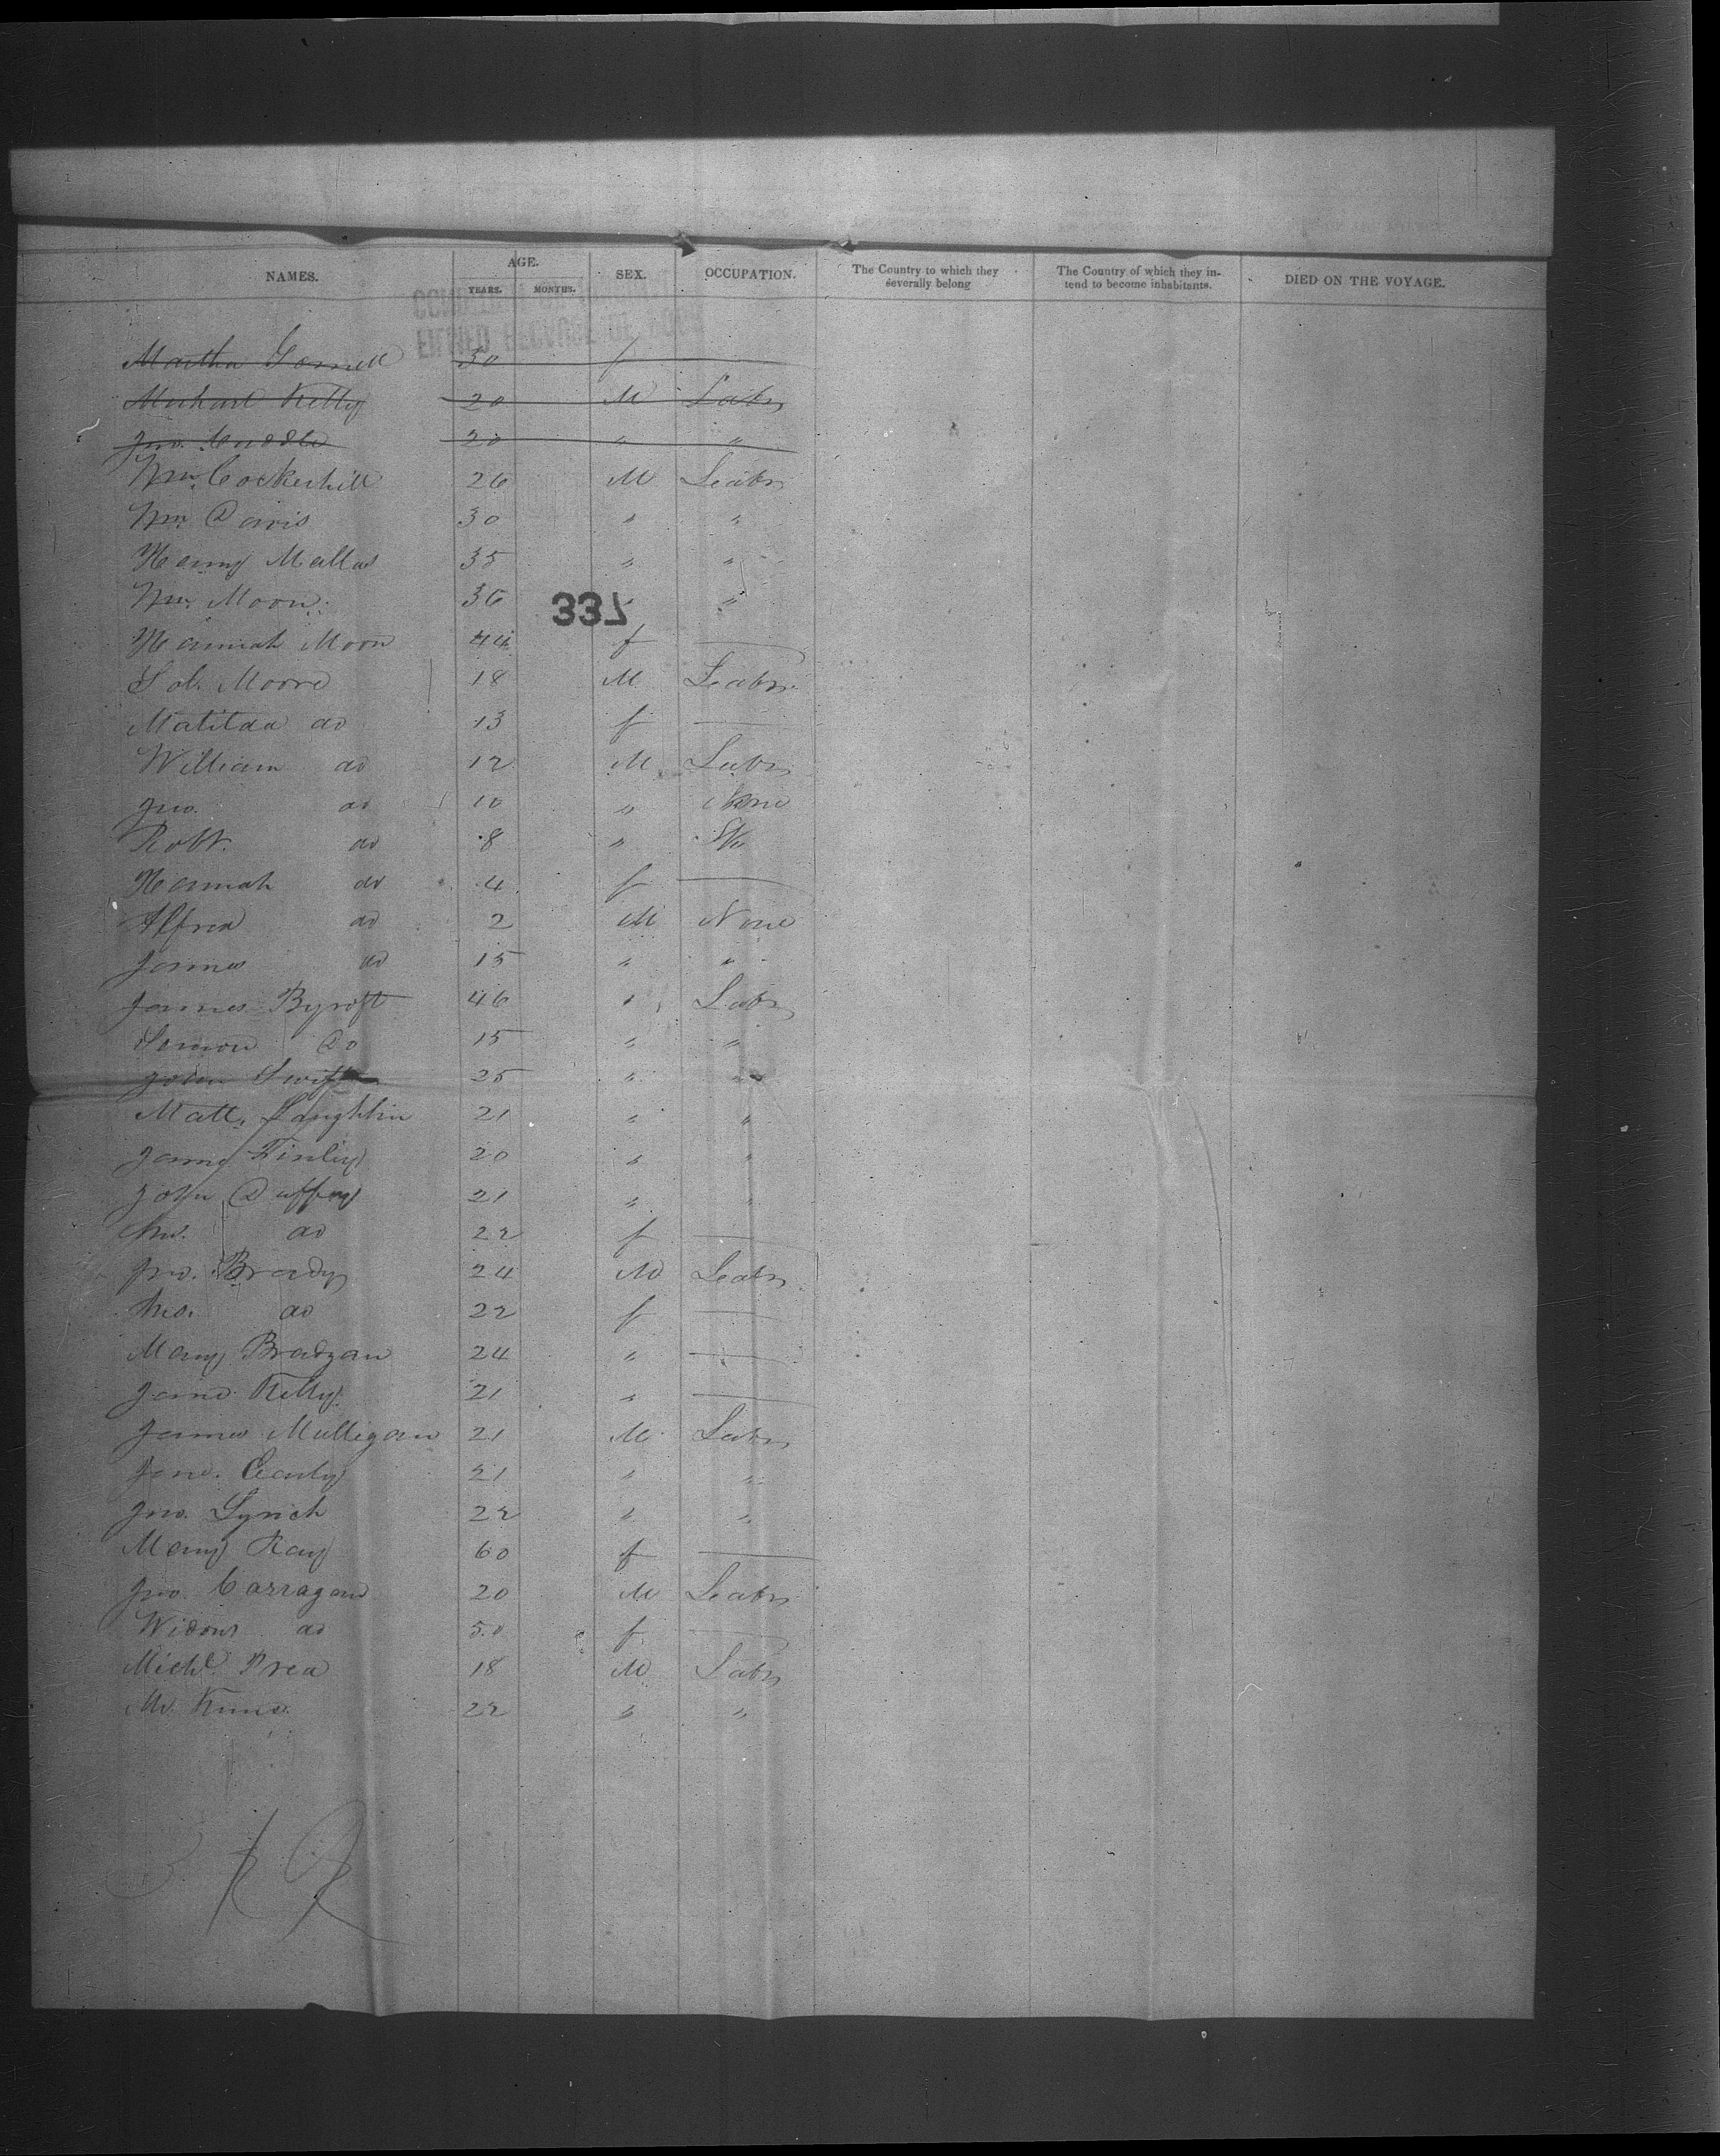 NAMES. AGE. YEARS. MONTHS. SEX. OCCUPATION. The Country to which they severally belong The Country of which they intend to become inhabitants. DIED ON THE VOYAGE.
Martha 30 f
Michael Kelly 20 M Labr
Jno. 20 " "
Wm. Cockerhill 26 M Labr
Wm Davis 30 " "
Henry Mallas 35 " "
Wm. Moon 36 " "
337
Hannah Moon 44 f —
Sol. Moore 18 M Labr
Matilda do 13 f —
William do 12 M Labr
Jno. do 10 " None
Robt. do 8 "
Hannah do 4 f —
Alfred do 2 M None
James do 15 " "
James Byroft 46 " Labr
Simon Do 15 " "
John Swift 25 " "
Matt. Laughlin 21 " "
James Finley 20 " "
John Duffey 21 " "
Mrs. do 22 f —
Jno. Brady 24 M Labr
Mrs. do 22 f —
Mary Bradgan 24 " —
Jane Kelly 21 " —
James Mulligan 21 M Labr
Early 21 " "
Jno. Lynch 22 " "
Mary Kay 60 f —
Jno. Carragan 20 M Labr
Widow do 50 f —
Michl. Prea 18 M Labr
22 " "